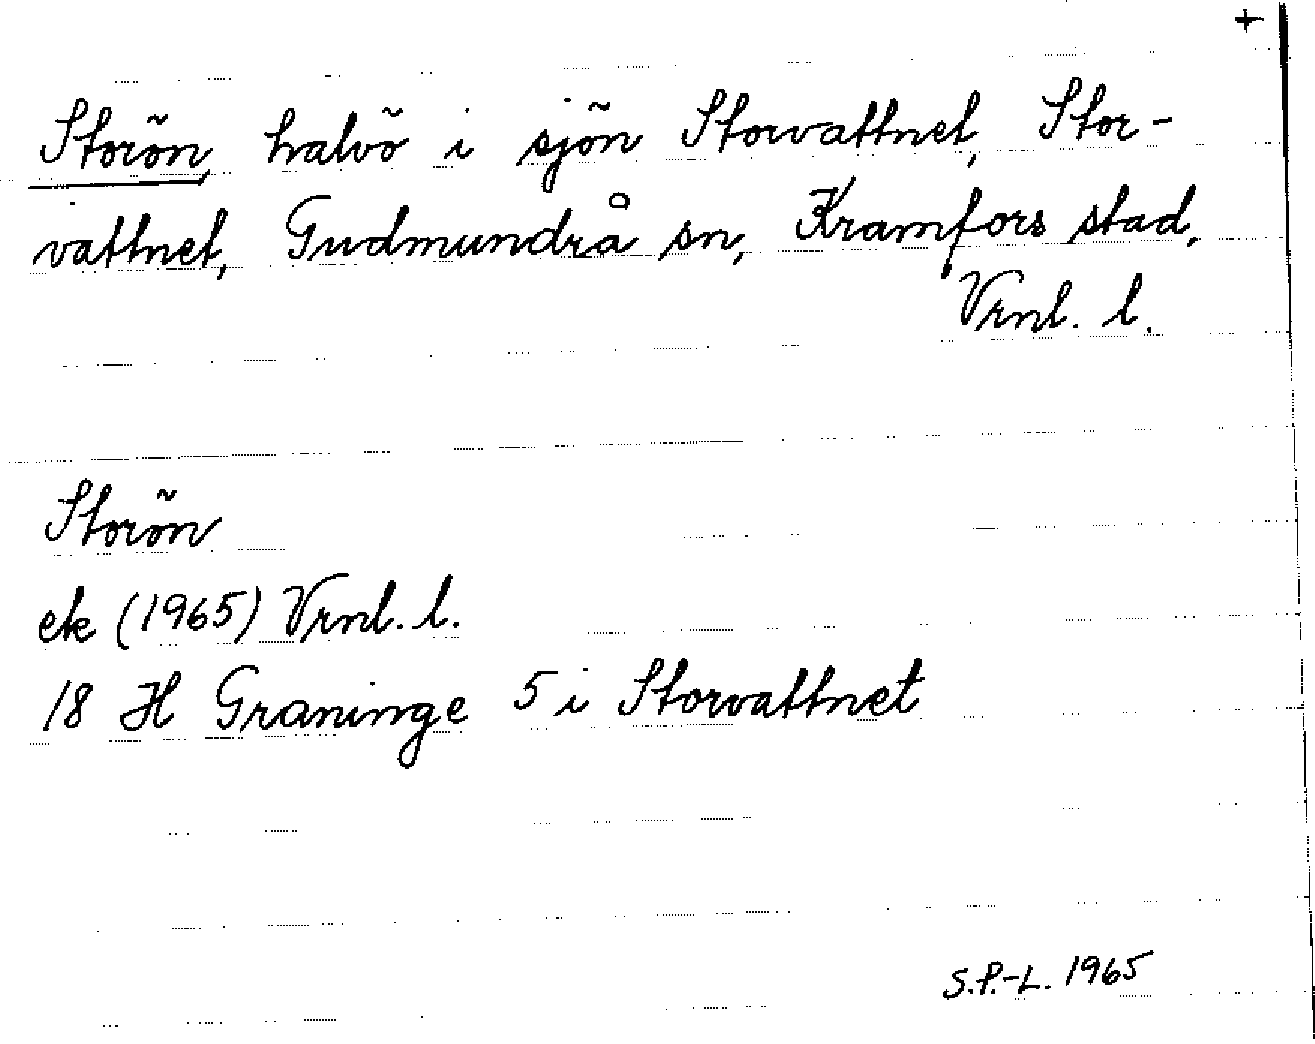 +
Storön, halvö i sjön Storvattnet, Stor-
vattnet, Gudmundrå sn, Kramfors stad,
Vrnl. l.
Storön
ek (1965) Vrnl. l.
18 H Graninge 5 i Storvattnet
S.P.-L. 1965